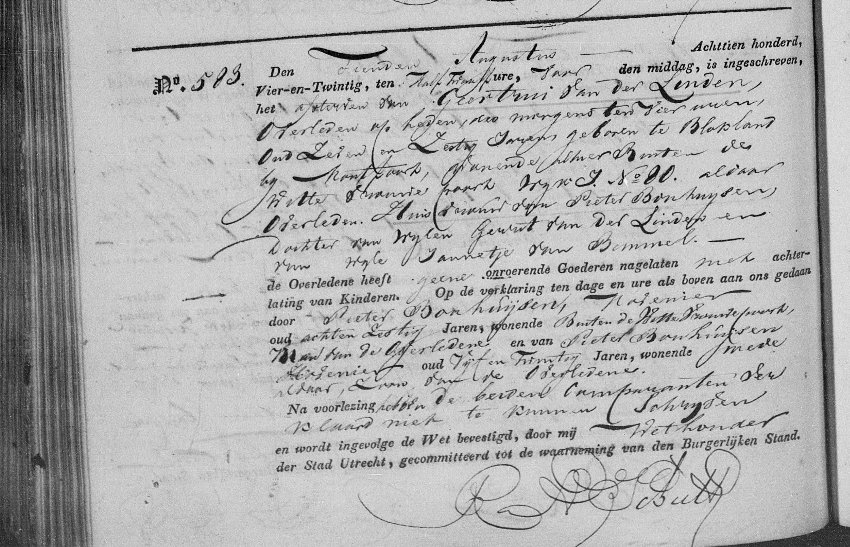 No. 503. Den Tienden Augustus Achttien honderd,
Vier-en-Twintig, ten Half Twaalf ure, Voor den middag, is ingeschreven,
het afsterven van Geertrui van der Linden,
Overleden op heden, des morgens ten vier uren,
Oud Zeven en Zestig Jaren, geboren te Blokland
by Montfoort, wonende alhier Buiten de
Witte Vrouwe poort Wyk J. No 80. aldaar
Overleden. Huisvrouw van Pieter Bonhuysen,
Dochter van wylen Gerrit van der Linden en
van wyle Jannetje van Bemmel.
de Overledene heeft geene onroerende Goederen nagelaten met achter-
lating van Kinderen. Op de verklaring ten dage en ure als boven aan ons gedaan
door Pieter Bonhuijsen, Hovenier
oud achten Zestig Jaren, wonende Buiten de Witte Vrouwepoort,
Man van de Overledene, en van Pieter Bonhuijsen
Hovenier oud Vijf en Twintig Jaren, wonende mede
aldaar, Zoon van de Overledene.
Na voorlezing hebben de beiden Comparanten ver
klaard niet te kunnen Schryven
en wordt ingevolge de Wet bevestigd, door mij Wethouder
der Stad Utrecht, gecommitteerd tot de waarneming van den Burgerlijken Stand.